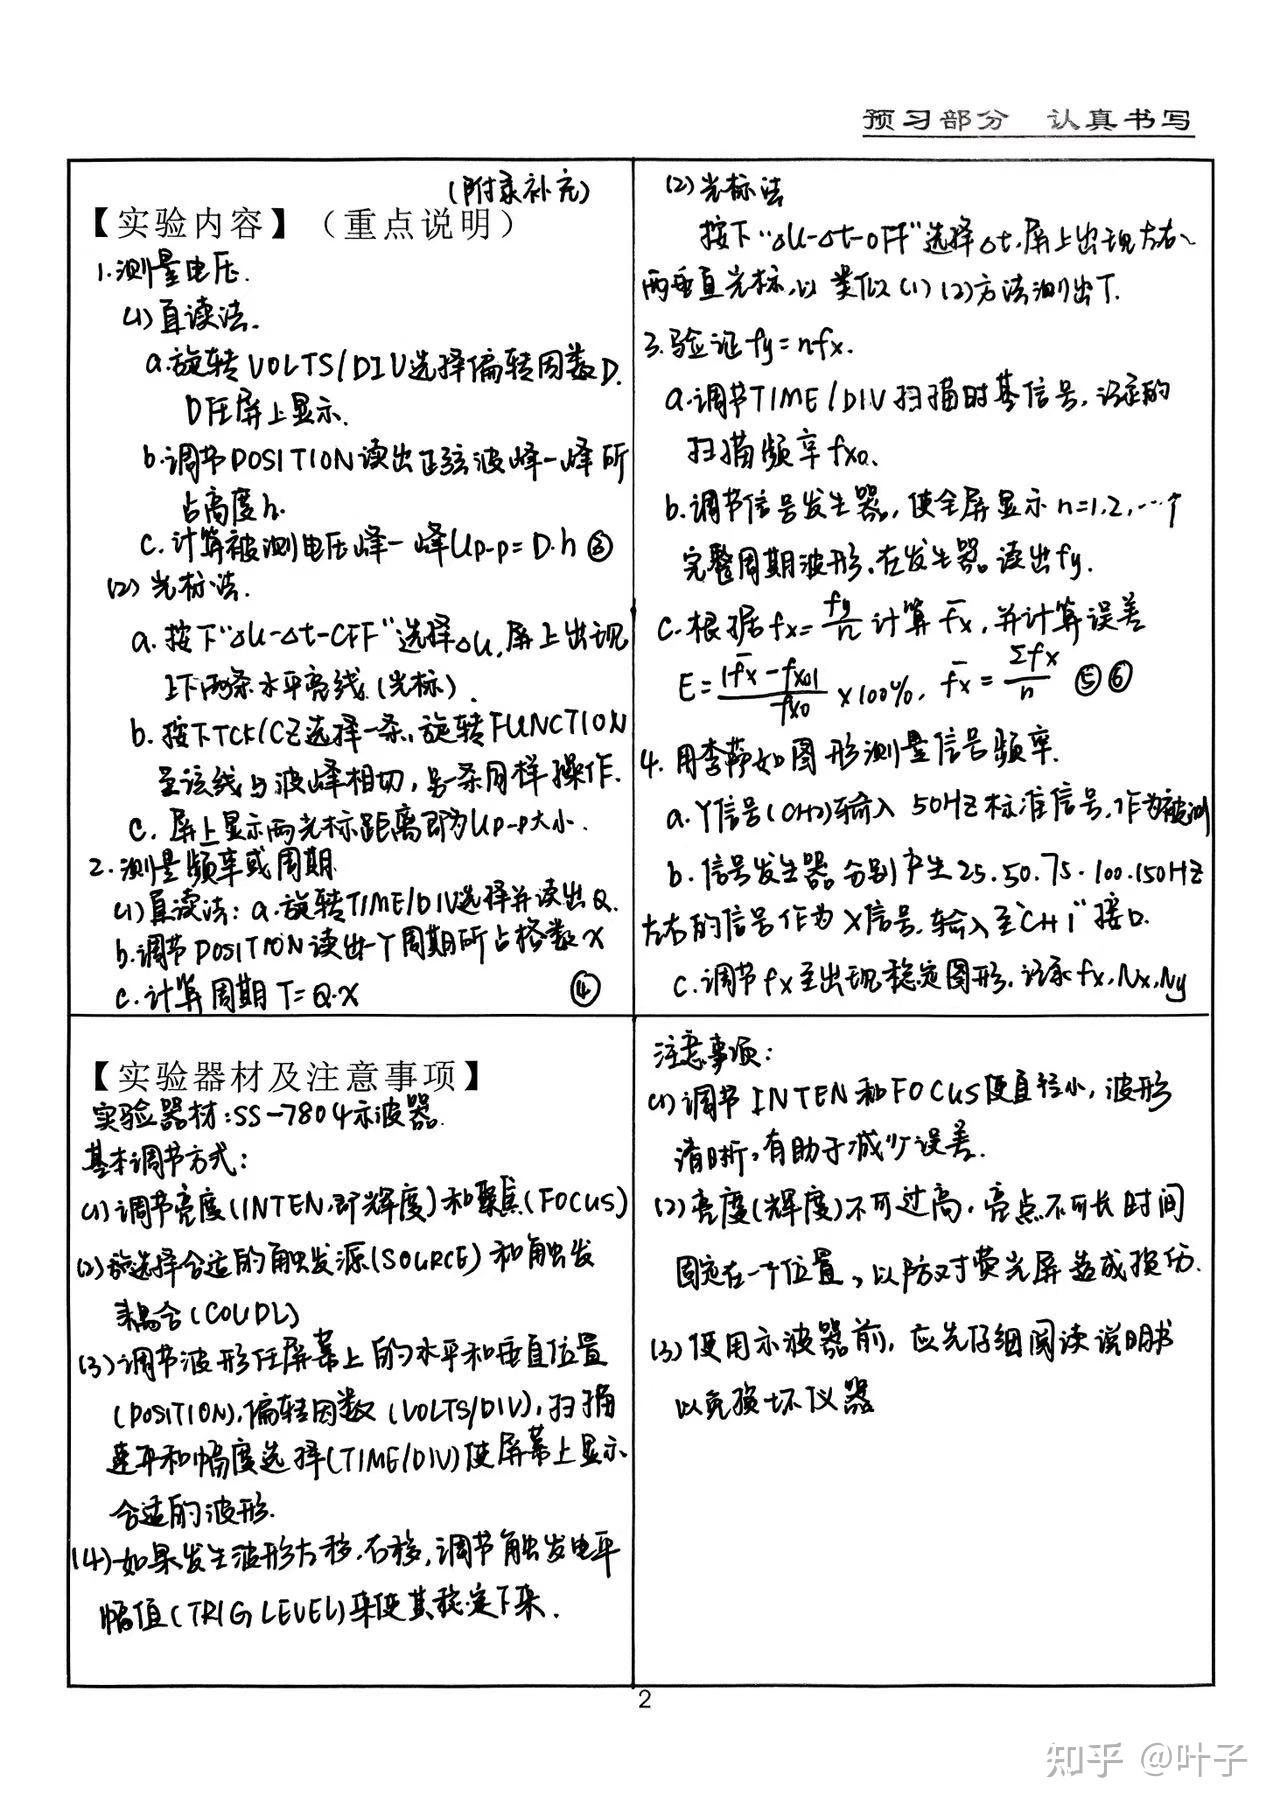 预习部分 认真书写
(附录补充)
【实验内容】（重点说明）
1.测量电压.
(1)直读法.
a.旋转VOLTS/DIV选择偏转因数D.
D在屏上显示.
b.调节POSITION读出正弦波峰-峰所
占高度h.
c.计算被测电压峰-峰Up-p=D·h ③
(2)光标法.
a.按下"ΔU-Δt-OFF"选择ΔU,屏上出现
上下两条水平亮线.(光标).
b.按下TCK/C2选择一条,旋转FUNCTION
至该线与波峰相切,另一条同样操作.
c.屏上显示两光标距离即为Up-p大小.
2.测量频率或周期
(1)直读法: a.旋转TIME/DIV选择并读出Q.
b.调节POSITION读出一个周期所占格数x
c.计算周期T=Q·x ④
(2)光标法
按下"ΔU-Δt-OFF"选择Δt,屏上出现左右
两垂直光标,以类似(1)(2)方法测出T.
3.验证fy=nfx.
a.调节TIME/DIV扫描时基信号,设定的
扫描频率fx0.
b.调节信号发生器,使全屏显示n=1,2,…个
完整周期波形.在发生器读出fy.
c.根据fx=fy/n计算f̄x,并计算误差
E=|f̄x-fx0|/fx0×100%, f̄x=Σfx/n ⑤⑥
4.用李萨如图形测量信号频率.
a.Y信号(CH2)输入50HZ标准信号,作为被测
b.信号发生器分别产生25.50.75.100.150HZ
左右的信号作为X信号.输入至"CH1"接口.
c.调节fx至出现稳定图形.记录fx,Nx,Ny
【实验器材及注意事项】
实验器材:SS-7804示波器.
基本调节方式:
(1)调节亮度(INTEN,即辉度)和聚焦(FOCUS)
(2)选择合适的触发源(SOURCE)和触发
耦合(COUPL)
(3)调节波形在屏幕上的水平和垂直位置
(POSITION),偏转因数(VOLTS/DIV),扫描
速率和幅度选择(TIME/DIV)使屏幕上显示
合适的波形.
(4)如果发生波形左移.右移,调节触发电平
幅值(TRIG LEVEL)来使其稳定下来.
注意事项:
(1)调节INTEN和FOCUS使直径小,波形
清晰,有助于减少误差.
(2)亮度(辉度)不可过高,亮点不可长时间
固定在一个位置,以防对荧光屏造成损伤.
(3)使用示波器前,应先仔细阅读说明书
以免损坏仪器
2
知乎 @叶子